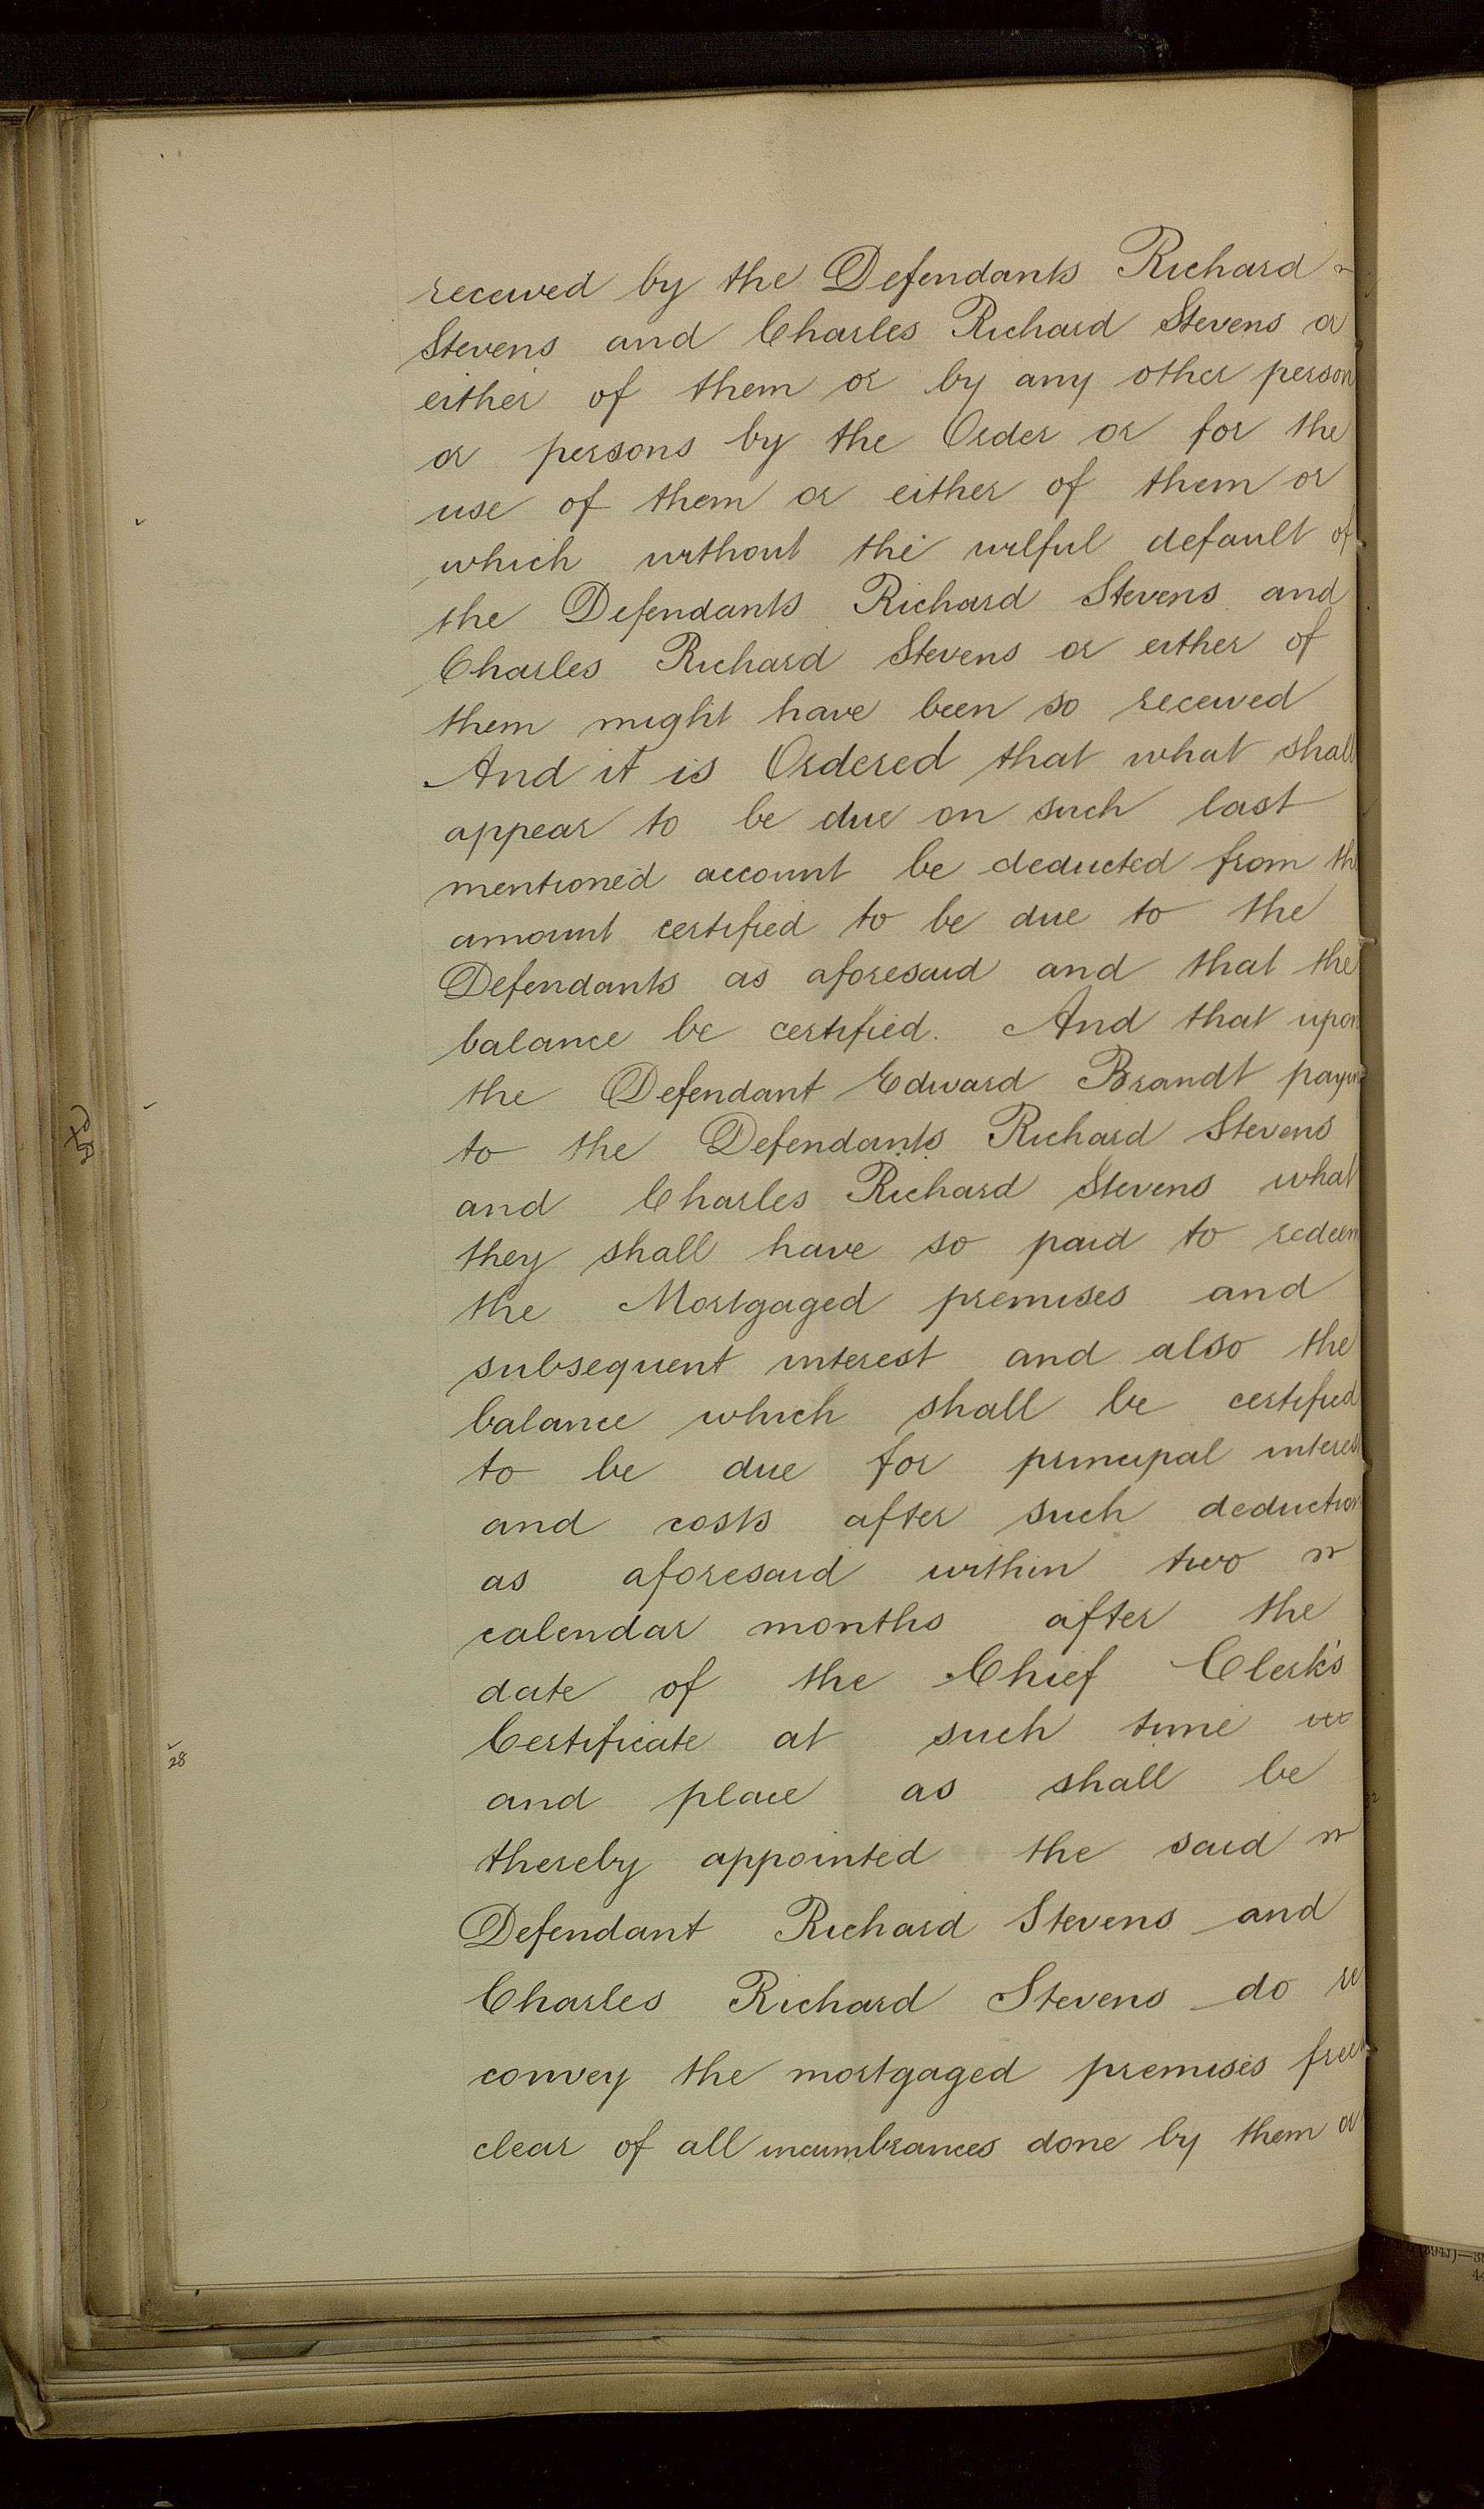 received by the Defendants Richard
Stevens and Charles Richard Stevens or
either of them or by any other person
or persons by the Order or for the
use of them or either of them or
which without the wilful default of
the Defendants Richard Stevens and
Charles Richard Stevens or either of
them might have been so received
And it is Ordered that what shall
appear to be due on such last
mentioned account be deducted from the
amount certified to be due to the
Defendants as aforesaid and that the
balance be certified. And that upon
the Defendant Edward Brandt paying
to the Defendants Richard Stevens
and Charles Richard Stevens what
they shall have so paid to redeem
the Mortgaged premises and
subsequent interest and also the
balance which shall be certified
to be due for principal interest
and costs after such deduction
as aforesaid within two
calendar months after the
date of the Chief Clerk's
Certificate at such time
and place as shall be
28
thereby appointed the said
Defendant Richard Stevens and
Charles Richard Stevens do re
convey the mortgaged premises free
clear of all incumbrances done by them or